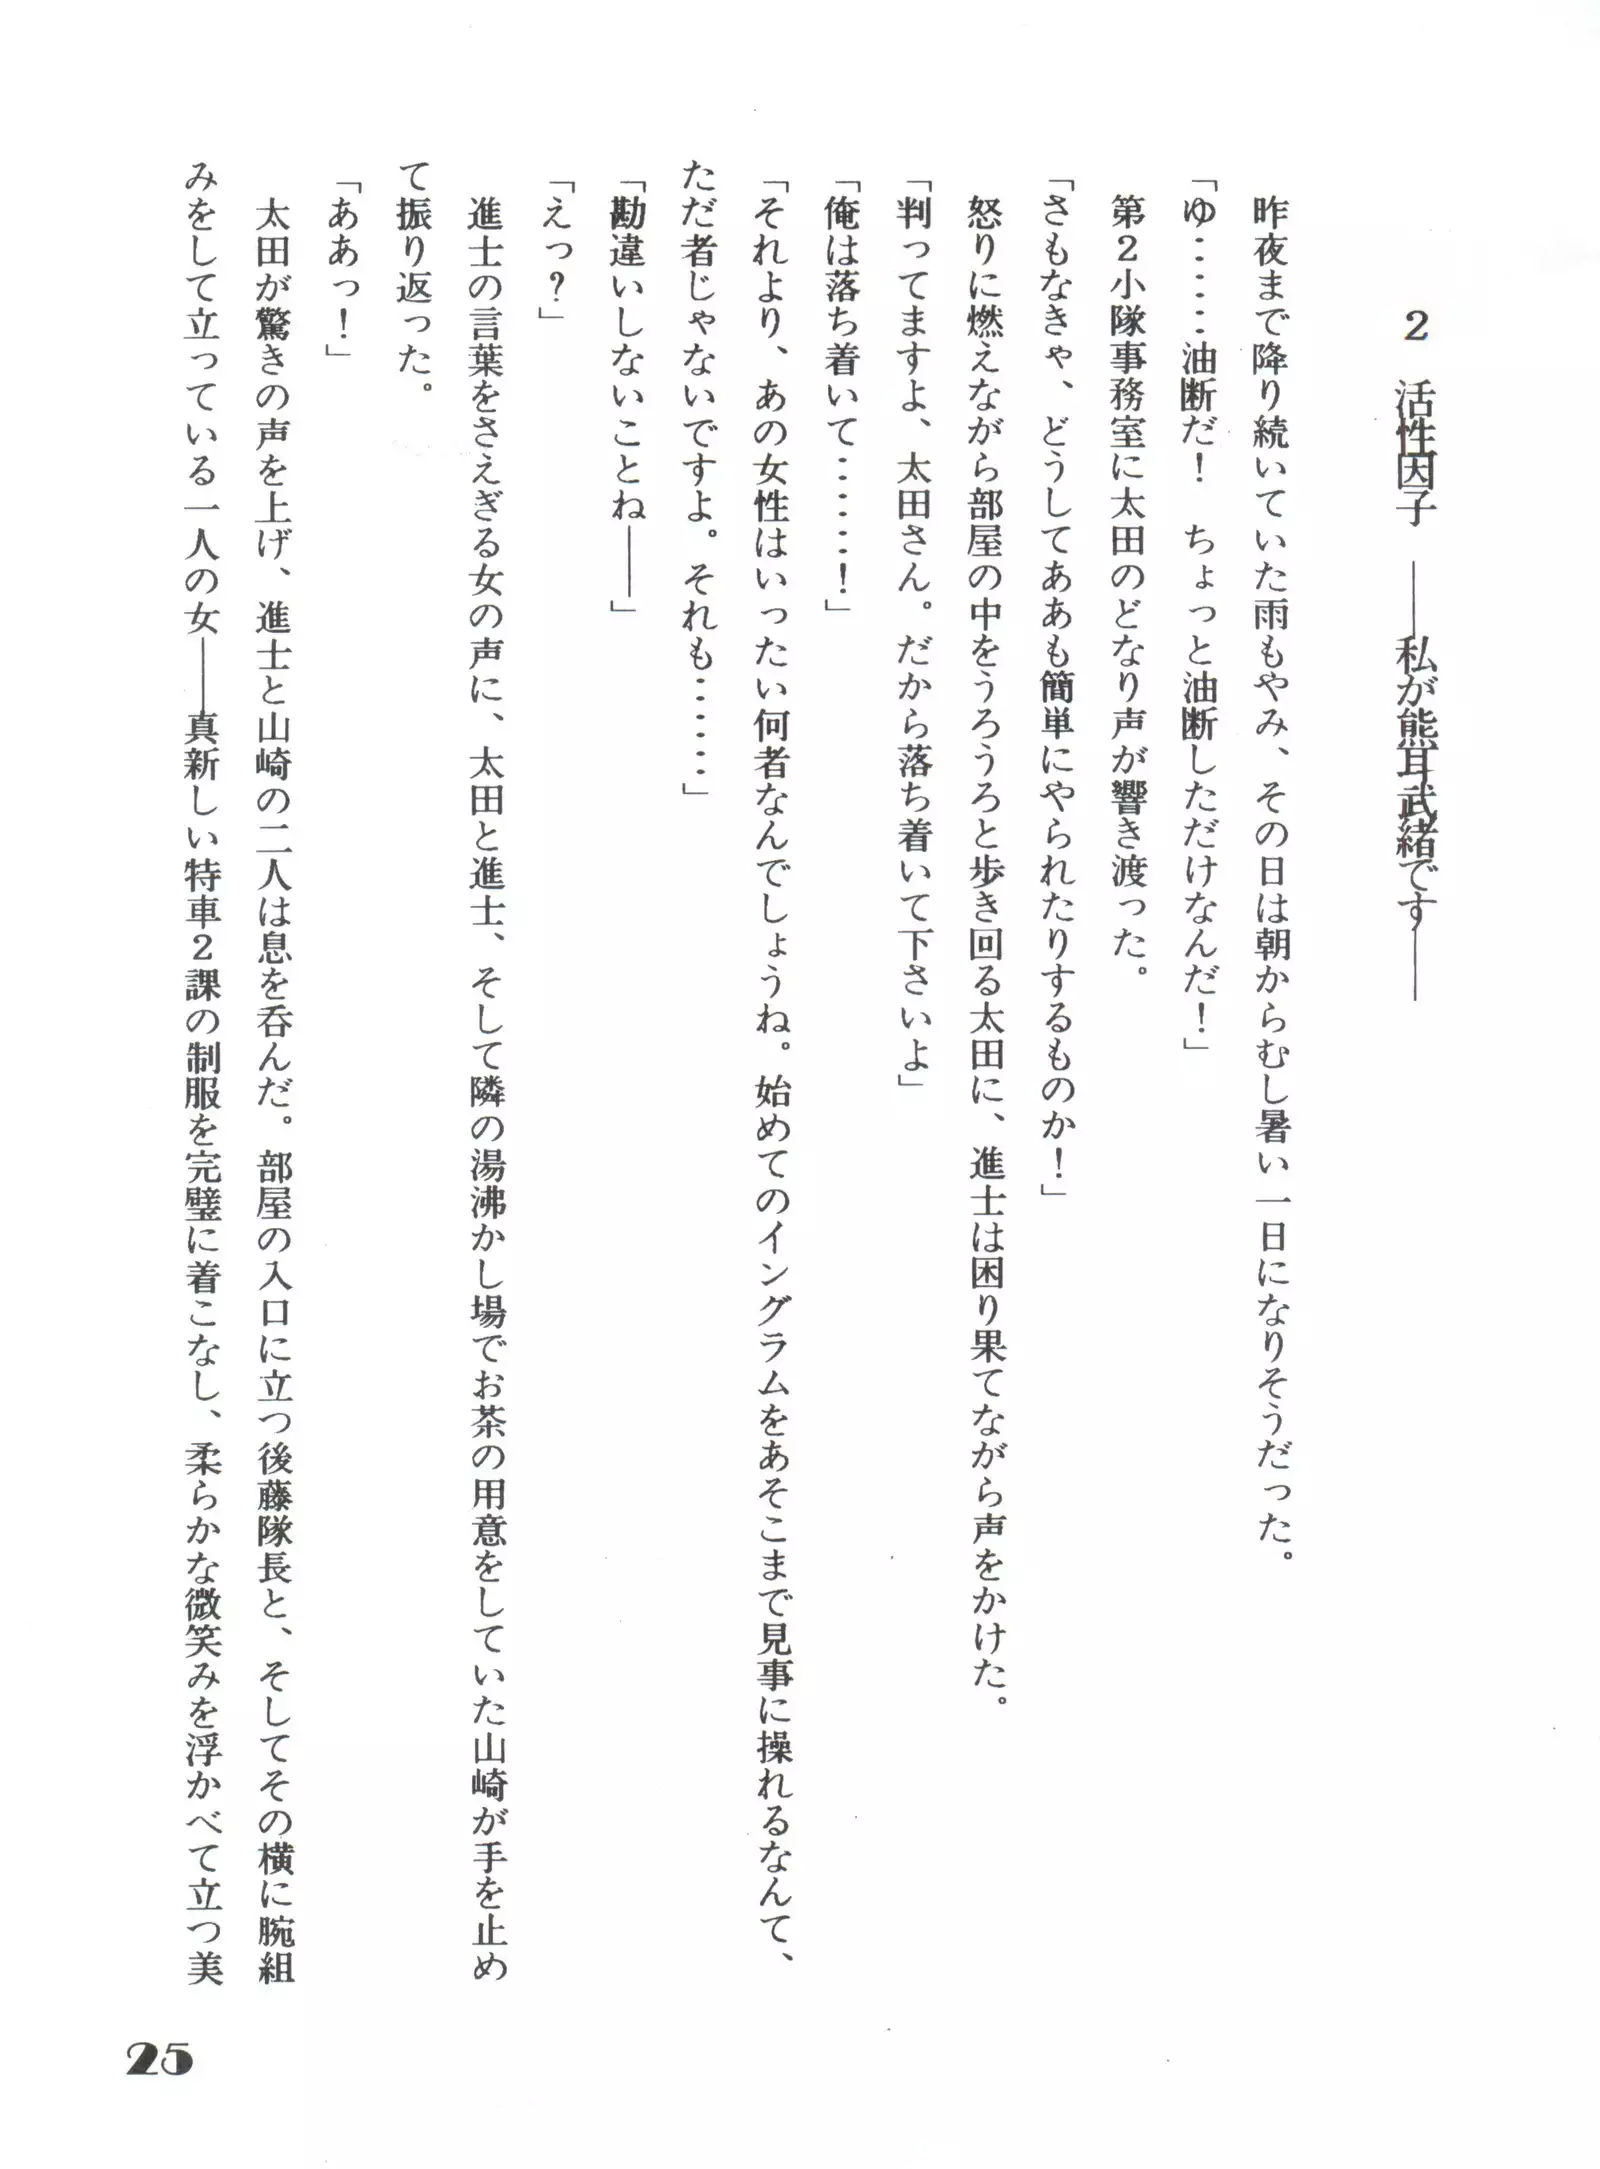 2　活性因子　――私が熊耳武緒です――
昨夜まで降り続いていた雨もやみ、その日は朝からむし暑い一日になりそうだった。
「ゆ……油断だ！　ちょっと油断しただけなんだ！」
第2小隊事務室に太田のどなり声が響き渡った。
「さもなきゃ、どうしてああも簡単にやられたりするものか！」
怒りに燃えながら部屋の中をうろうろと歩き回る太田に、進士は困り果てながら声をかけた。
「判ってますよ、太田さん。だから落ち着いて下さいよ」
「俺は落ち着いて……！」
「それより、あの女性はいったい何者なんでしょうね。始めてのイングラムをあそこまで見事に操れるなんて、
ただ者じゃないですよ。それも……」
「勘違いしないことね――」
「えっ？」
進士の言葉をさえぎる女の声に、太田と進士、そして隣の湯沸かし場でお茶の用意をしていた山崎が手を止め
て振り返った。
「ああっ！」
太田が驚きの声を上げ、進士と山崎の二人は息を呑んだ。部屋の入口に立つ後藤隊長と、そしてその横に腕組
みをして立っている一人の女――真新しい特車2課の制服を完璧に着こなし、柔らかな微笑みを浮かべて立つ美
25